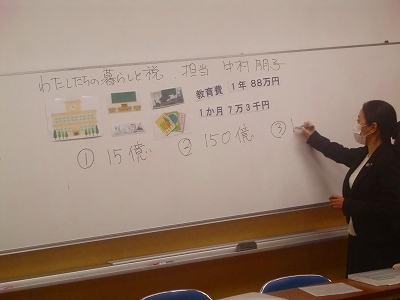 わたしたちの暮らしと税 担当 中村 朋子
教育費 1年 88万円
1か月 7万3千円
① 15億 ② 150億 ③ 1